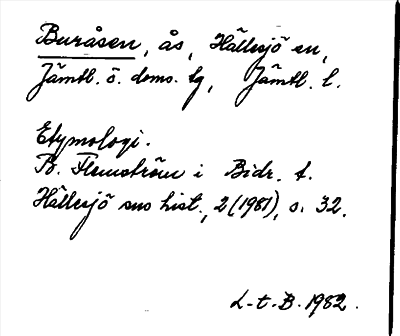 Buråsen, ås, Hällesjö sn,
Jämtl. ö. doms. tg, Jämtl. l.
Etymologi.
Bo. Flemström i Bidr. t.
Hällesjö sns hist., 2 (1981), s. 32.
L-t-B. 1982.